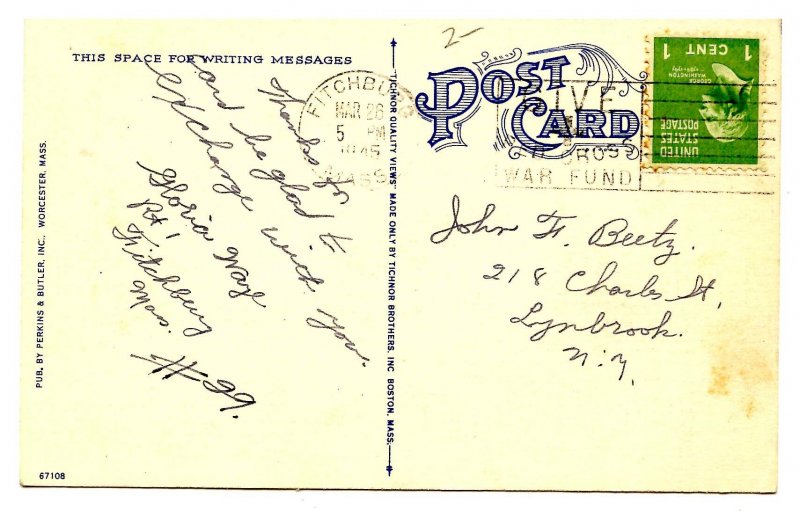 THIS SPACE FOR WRITING MESSAGES
Thanks so
and be glad to
exchange with you.
Gloria
Rt 1
Fitchburg
Mass.
#29.
PUB. BY PERKINS & BUTLER, INC., WORCESTER, MASS.
67108
"TICHNOR QUALITY VIEWS" MADE ONLY BY TICHNOR BROTHERS, INC BOSTON, MASS.
2-
POST
CARD
FITCHBURG
MAR 26
5 PM
1945
MASS
GIVE
RED CROSS
WAR FUND
UNITED
STATES
POSTAGE
GEORGE
WASHINGTON
1 CENT 1
John F. Beetz.
218 Charles St,
Lynbrook.
N.Y.